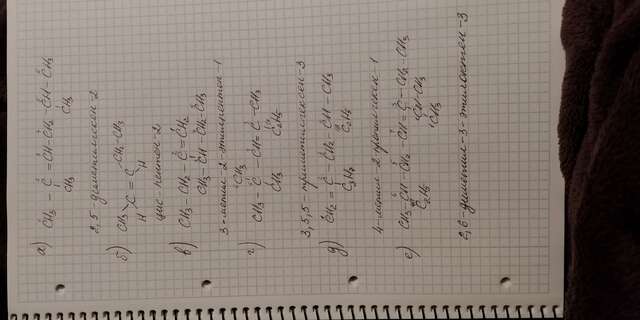 а) CH3 - C = CH - CH2 - CH - CH3
CH3 CH3
2,5-диметилгексен-2
б) CH3 CH2CH3
C = C
H H
цис-пентен-2
в) CH3 - CH2 - C = CH2
CH3 CH CH2 CH3
3-метил-2-этилпентен-1
г) CH3
CH3 - C - CH = C - CH3
CH3 C2H5
3,5,5 триметилгексен-3
д) CH2 = C - CH2 - CH - CH3
C3H7 C2H5
4-метил-2
е) CH3 - CH - CH2 - CH = C - CH2 - CH3
C2H5 CH-CH3
CH3
2,6-диметил-3-этилоктен-3